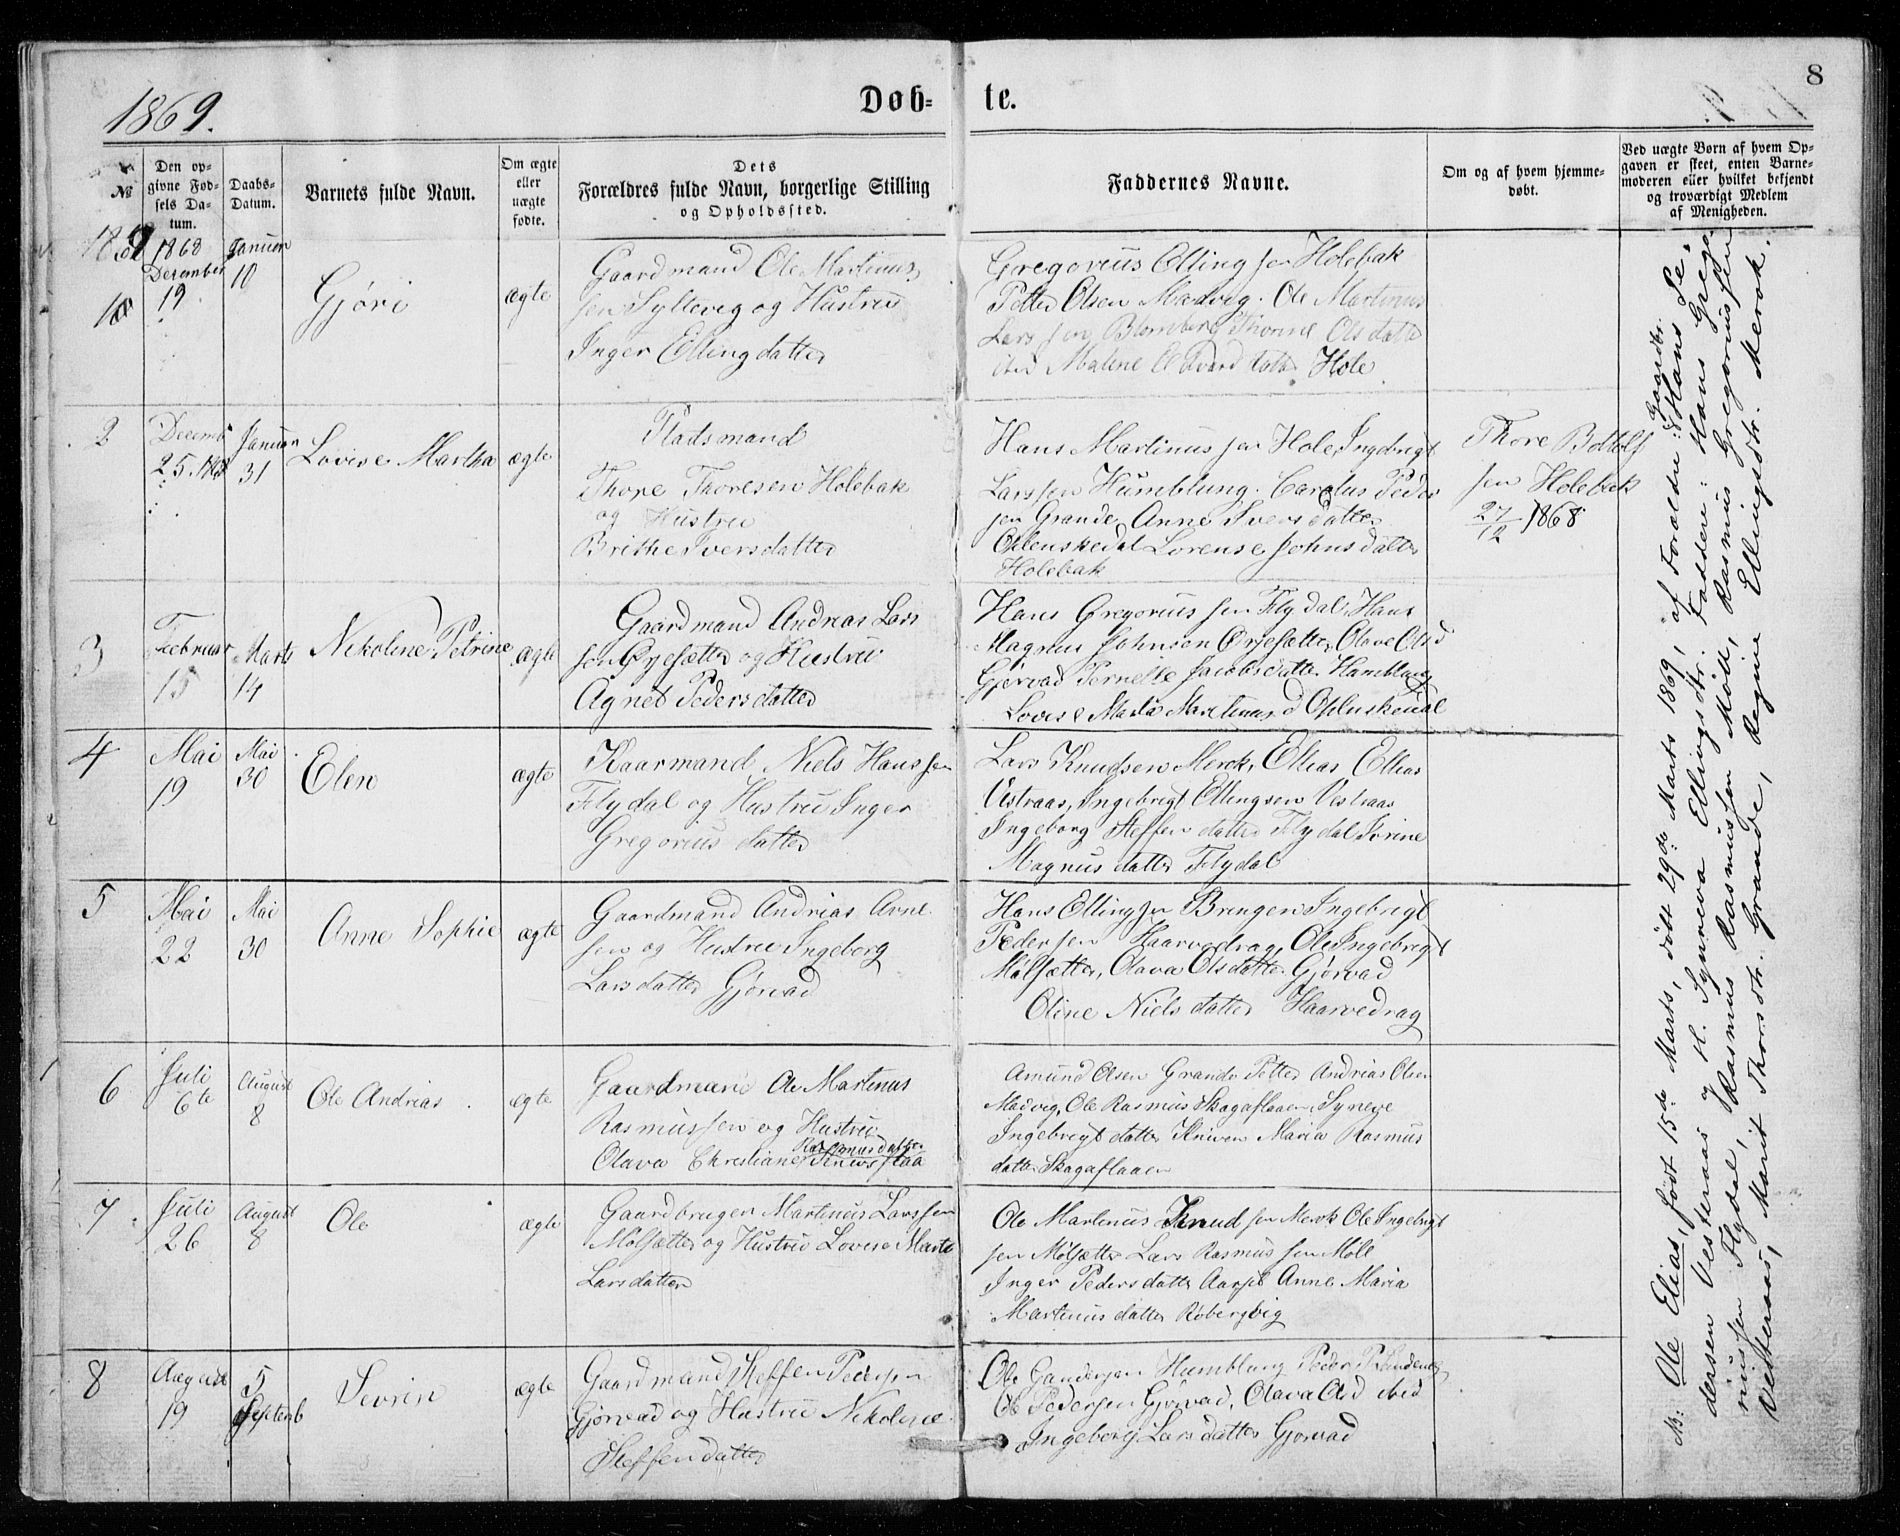 8
1869.
Døb- te.
№
Den op-
givne Fød-
sels Da-
tum.
Daabs-
Datum.
Barnets fulde Navn.
Om ægte
eller
uægte
fødte.
Dets
Forældres fulde Navn, borgerlige Stilling
og Opholdssted.
Faddernes Navne.
Om og af hvem hjemme-
døbt.
Ved uægte Børn af hvem Op-
gaven er skeet, enten Barne-
moderen eller hvilket bekjendt
og troværdigt Medlem
af Menigheden.
1869
1
1868
December
19
Januar
10
Gjøri
ægte
Gaardmand Ole Martinus
sen Syltevig og Hustru
Inger Ellingdatter
Gregorius Ellingsen Holebak
Petter Olsen Madvig. Ole Martinus
Larssen Blomberg Thorine Olsdatter
ibid Malene Edvardsdatter Hole
2
Decemb
25. 1868
Januar
31
Lovise Martha
ægte
Pladsmand
Thore Thoresen Holebak
og Hustru
Brithe Iversdatter
Hans Martinussen Hole, Ingebrigt
Larssen Humblung. Carolus Peder
sen Grande, Anne Iversdatter
Oplenskedal Lorense Johnsdatter
Holebak
Thore Bottolf
sen Holebak
27/12 1868
3
Februar
15
Marts
14
Nikoline Petrine
ægte
Gaardmand Andreas Lars
sen Ørjesætter og Hustru
Agnet Pedersdatter
Hans Gregoriussen Flydal, Hans
Magnus Johnsen Ørjesætter, Olave Olsd
Gjørvad Pernelle Jacobsdatter Humblung
Lovise Marta Martinusd Oplenskedal
4
Mai
19
Mai
30
Elen
ægte
Kaarmand Niels Hanssen
Flydal og Hustru Inger
Gregorius datter
Lars Knudsen Merok, Elias Elias
Vestraas, Ingebrigt Ellingsen Vestraas
Ingeborg Steffensdatter Flydal Severine
Magnusdatter Flydal
5
Mai
22
Mai
30
Anne Sophie
ægte
Gaardmand Andrias Arne
sen og Hustru Ingeborg
Larsdatter Gjørvad
Hans Ellingsen Bringen Ingebrigt
Pedersen Haarvedrag, Ole Ingebrigt
Mølsætter, Olava Olsdatter Gjørvad
Oline Nielsdatter Haarvedrag
6
Juli
6te
August
8
Ole Andrias
ægte
Gaardmand Ole Martinus
Rasmussen og Hustru
Rasmusdatter
Olava Christiane Knivsflaa
Amund Olsen Grande Petter Andrias Olsen
Madvig, Ole Rasmus Skagaflaaen, Syneve
Ingebrigtdatter Kniven Maria Rasmus
datter Skagaflaaen
7
Juli
26
August
8
Ole
ægte
Gaardbruger Martinus Larssen
Mølsætter og Hustru Lovise Marte
Larsdatter
Ole Martinus Knudsen Merok Ole Ingebrigt
sen Mølsætter Lars Rasmussen Møle
Inger Pedersdatter Aarset Anne Maria
Martinusdatter Robergvig
8
August
19
5
Septemb
Sevrin
ægte
Gaardmand Steffen Pedersen
Gjørvad og Hustru Nikoline
Steffendatter
Ole Gundersen Humblung Peder P.
Ole Pedersen Gjørvad, Olava Olsd ibid
Ingeborg Larsdatter Gjørvad
Nb: Ole Elias, født 15de Marts, døbt 29de Marts 1869, af Forældre: Gaardbr. Hans Pe-
dersen Vesteraas og H. Synneva Ellingsdtr. Faddere: Hans Grego
riussen Flydal, Rasmus Rasmussen Møll, Rasmus Gregoriussen
Vesteraas, Marit Thorsdtr. Grande, Regine Ellingsdtr. Merok.